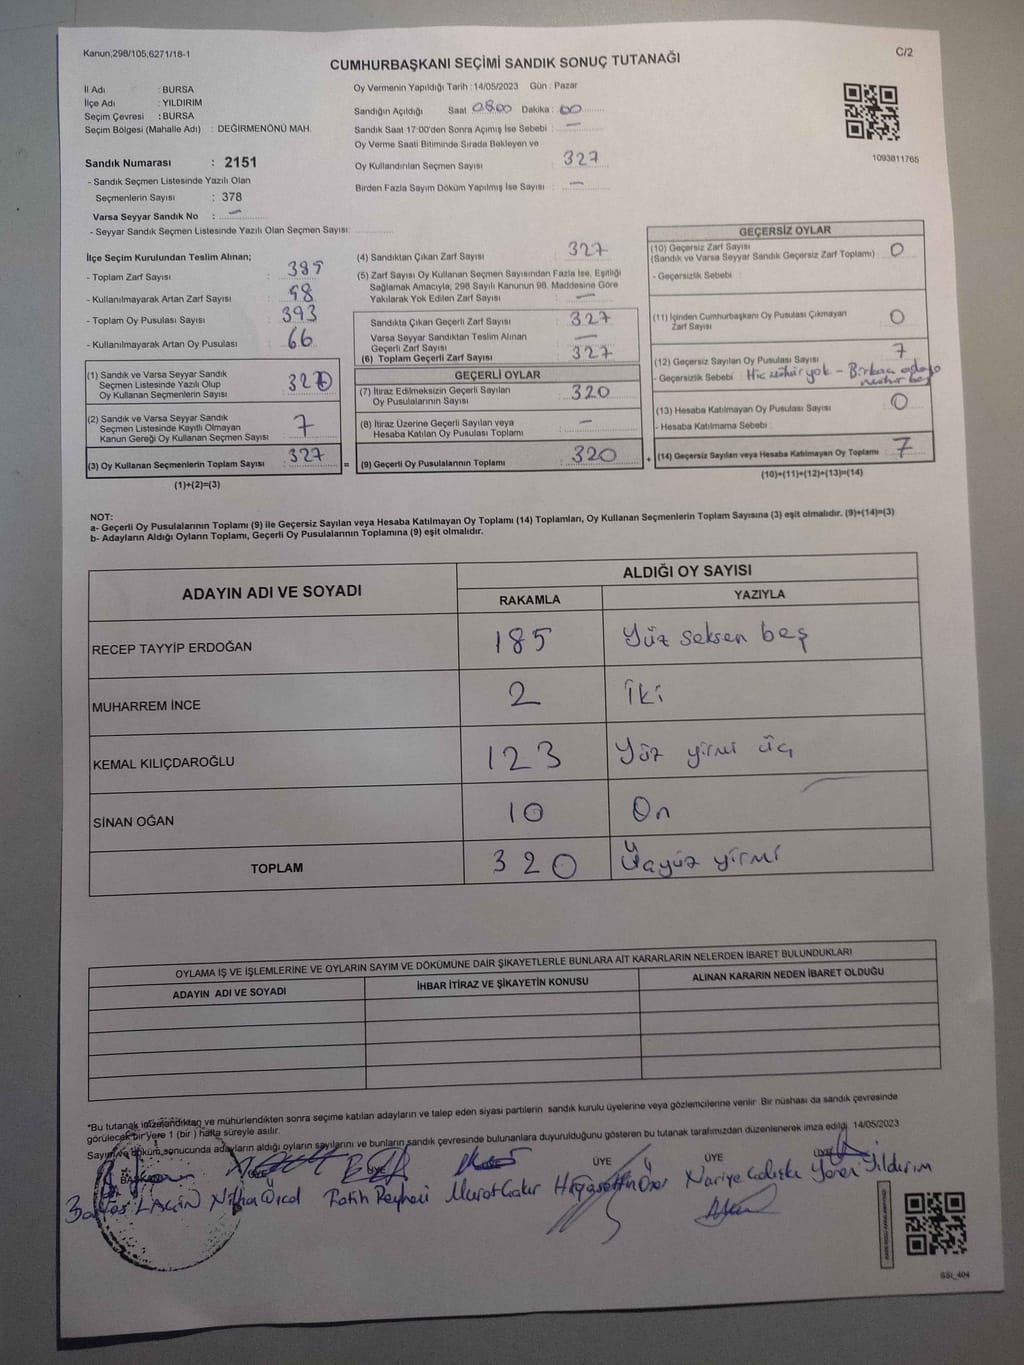 Kanun;298/105;6271/18-1
C/2
CUMHURBAŞKANI SEÇİMİ SANDIK SONUÇ TUTANAĞI
İl Adı : BURSA
İlçe Adı : YILDIRIM
Seçim Çevresi : BURSA
Seçim Bölgesi (Mahalle Adı) : DEĞİRMENÖNÜ MAH.
Sandık Numarası : 2151
- Sandık Seçmen Listesinde Yazılı Olan
Seçmenlerin Sayısı : 378
Varsa Seyyar Sandık No : —
- Seyyar Sandık Seçmen Listesinde Yazılı Olan Seçmen Sayısı:
Oy Vermenin Yapıldığı Tarih : 14/05/2023 Gün : Pazar
Sandığın Açıldığı Saat 08.00 Dakika : 00
Sandık Saat 17:00'den Sonra Açımış İse Sebebi : —
Oy Verme Saati Bitiminde Sırada Bekleyen ve
Oy Kullandırılan Seçmen Sayısı : 327
Birden Fazla Sayım Döküm Yapılmış İse Sayısı : —
1093811765
İlçe Seçim Kurulundan Teslim Alınan;
- Toplam Zarf Sayısı : 385
- Kullanılmayarak Artan Zarf Sayısı : 58
- Toplam Oy Pusulası Sayısı : 393
- Kullanılmayarak Artan Oy Pusulası : 66
(1) Sandık ve Varsa Seyyar Sandık
Seçmen Listesinde Yazılı Olup
Oy Kullanan Seçmenlerin Sayısı : 320
(2) Sandık ve Varsa Seyyar Sandık
Seçmen Listesinde Kayıtlı Olmayan
Kanun Gereği Oy Kullanan Seçmen Sayısı : 7
(3) Oy Kullanan Seçmenlerin Toplam Sayısı : 327
(1)+(2)=(3)
(4) Sandıktan Çıkan Zarf Sayısı : 327
(5) Zarf Sayısı Oy Kullanan Seçmen Sayısından Fazla İse, Eşitliği
Sağlamak Amacıyla, 298 Sayılı Kanunun 98. Maddesine Göre
Yakılarak Yok Edilen Zarf Sayısı : —
Sandıkta Çıkan Geçerli Zarf Sayısı : 327
Varsa Seyyar Sandıktan Teslim Alınan
Geçerli Zarf Sayısı : —
(6) Toplam Geçerli Zarf Sayısı : 327
GEÇERLİ OYLAR
(7) İtiraz Edilmeksizin Geçerli Sayılan
Oy Pusulalarının Sayısı : 320
(8) İtiraz Üzerine Geçerli Sayılan veya
Hesaba Katılan Oy Pusulası Toplamı : —
= (9) Geçerli Oy Pusulalarının Toplamı : 320
GEÇERSİZ OYLAR
(10) Geçersiz Zarf Sayısı
(Sandık ve Varsa Seyyar Sandık Geçersiz Zarf Toplamı) : 0
- Geçersizlik Sebebi :
(11) İçinden Cumhurbaşkanı Oy Pusulası Çıkmayan
Zarf Sayısı : 0
(12) Geçersiz Sayılan Oy Pusulası Sayısı : 7
- Geçersizlik Sebebi : Hiç mühür yok - Birkaç adaya
mühür
(13) Hesaba Katılmayan Oy Pusulası Sayısı : 0
- Hesaba Katılmama Sebebi :
+ (14) Geçersiz Sayılan veya Hesaba Katılmayan Oy Toplamı : 7
(10)+(11)+(12)+(13)=(14)
NOT:
a- Geçerli Oy Pusulalarının Toplamı (9) ile Geçersiz Sayılan veya Hesaba Katılmayan Oy Toplamı (14) Toplamları, Oy Kullanan Seçmenlerin Toplam Sayısına (3) eşit olmalıdır. (9)+(14)=(3)
b- Adayların Aldığı Oyların Toplamı, Geçerli Oy Pusulalarının Toplamına (9) eşit olmalıdır.
ADAYIN ADI VE SOYADI
ALDIĞI OY SAYISI
RAKAMLA YAZIYLA
RECEP TAYYİP ERDOĞAN 185 Yüz seksen beş
MUHARREM İNCE 2 İki
KEMAL KILIÇDAROĞLU 123 Yüz yirmi üç
SİNAN OĞAN 10 On
TOPLAM 320 Üçyüz yirmi
OYLAMA İŞ VE İŞLEMLERİNE VE OYLARIN SAYIM VE DÖKÜMÜNE DAİR ŞİKAYETLERLE BUNLARA AİT KARARLARIN NELERDEN İBARET BULUNDUKLARI
ADAYIN ADI VE SOYADI İHBAR İTİRAZ VE ŞİKAYETİN KONUSU ALINAN KARARIN NEDEN İBARET OLDUĞU
*Bu tutanak imzalandıktan ve mühürlendikten sonra seçime katılan adayların ve talep eden siyasi partilerin sandık kurulu üyelerine veya gözlemcilerine verilir. Bir nüshası da sandık çevresinde
görülecek bir yere 1 (bir) hafta süreyle asılır.
Sayım ve döküm sonucunda adayların aldığı oyların sayılarını ve bunların sandık çevresinde bulunanlara duyurulduğunu gösteren bu tutanak tarafımızdan düzenlenerek imza edildi. 14/05/2023
BAŞKAN ÜYE ÜYE ÜYE ÜYE
Fatih Murat Çakır Nuriye Yıldırım
SSI_404